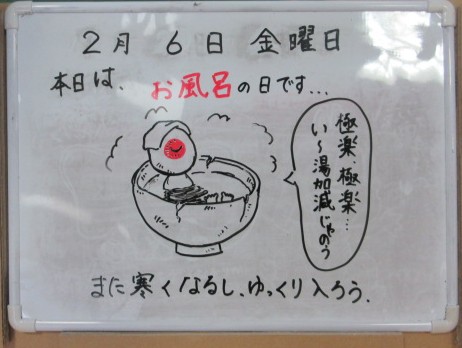 2月 6日 金曜日
本日は、お風呂の日です...
極楽、極楽...
い〜湯加減じゃのう
また寒くなるし、ゆっくり入ろう.